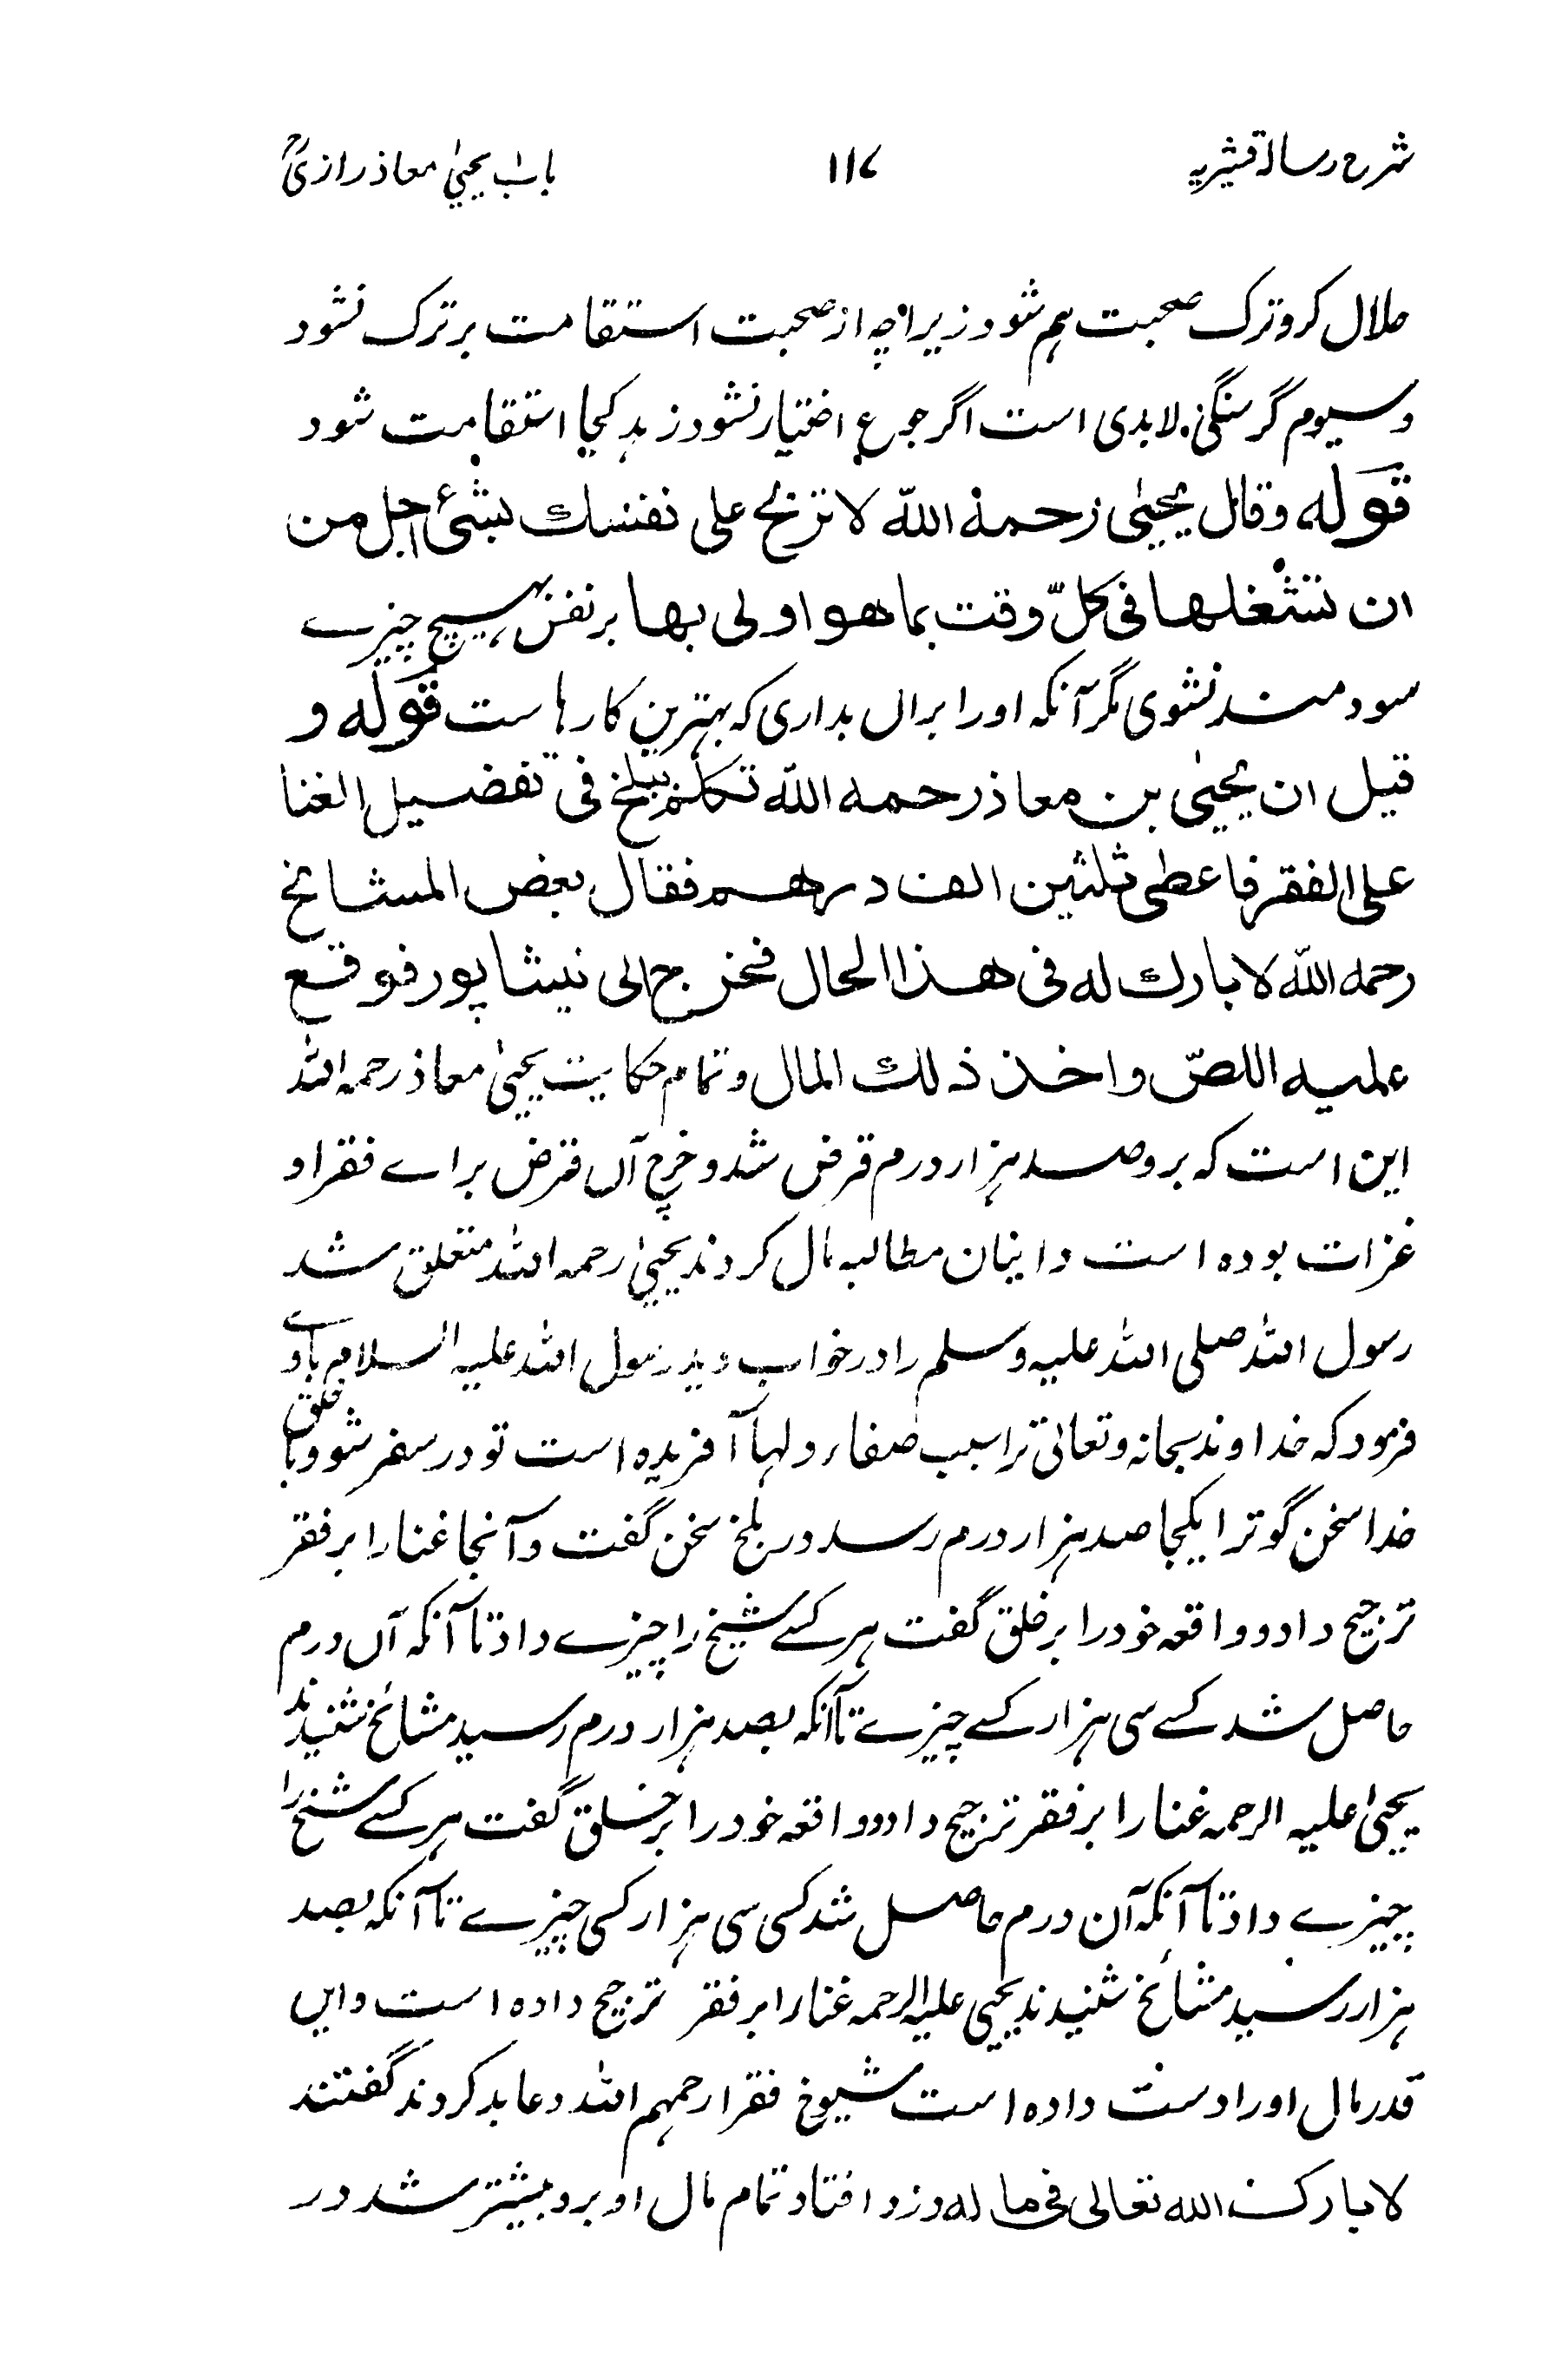 شرح رسالۂ قشیریہ ۱۱۷ باب یحییٰ معاذ رازیؒ
حلال کرو ترک صحبت ہم شود زیراچہ از صحبت استقامت بر ترک نشود
و سیوم گرسنگی لابدی است اگر جوع اختیار نشود زہد کجا استقامت شود
قوله وقال یحییٰ رحمه اللہ لا تربح علی نفسك بشیٔ اجل من
ان تشغلها فی کلّ وقت بما هو اولی بها بر نفس ہیچ چیزے
سودمند نشوی مگر آنکہ اورا برال بداری کہ بہترین کارہاست قوله و
قیل ان یحییٰ بن معاذ رحمه اللہ تکلم ببلخ فی تفضیل الغنا
علی الفقر فاعطی ثلثین الف درهم فقال بعض المشائخ
رحمه اللہ لا بارك له فی هذا الحال فخرج الی نیشاپور فوقع
علیه اللصّ واخذ ذلك المال و تمام حکایت یحییٰ معاذ رحمہ اللہ
این است کہ برو صد ہزار درم قرض شد و خرچ آں قرض براے فقرا و
غزات بودہ است و اینان مطالبہ مال کردند یحییٰ رحمہ اللہ متعلق شد
رسول اللہ صلی اللہ علیہ وسلم را در خواب دید رسول اللہ علیہ السلام باوے
فرمود کہ خداوند سبحانہ وتعالیٰ ترا سبب صفاء دلہا آفریدہ است تو در سفر شو و با خلق
خدا سخن گو ترا یکجا صد ہزار درم رسد در بلخ سخن گفت و آنجا غنا را بر فقر
ترجیح داد و واقعہ خود را بر خلق گفت ہر کسے شیخ را چیزے داد تا آنکہ آں درم
حاصل شد کسے سی ہزار کسے چیزے تا آنکہ بصد ہزار درم رسید مشائخ شنیدند
یحییٰ علیہ الرحمہ غنا را بر فقر ترجیح داد و واقعہ خود را بر خلق گفت ہر کسے شیخ را
چیزے داد تا آنکہ آن درم حاصل شد کسی سی ہزار کسی چیزے تا آنکہ بصد
ہزار رسید مشائخ شنیدند یحییٰ علیہ الرحمہ غنا را بر فقر ترجیح دادہ است و ایں
قدر مال اورا دست دادہ است شیوخ فقرا رحمہم اللہ دعا بد کردند گفتند
لا بارك الله تعالى فی ماله دزد افتاد تمام مال او برد بیشتر شد در